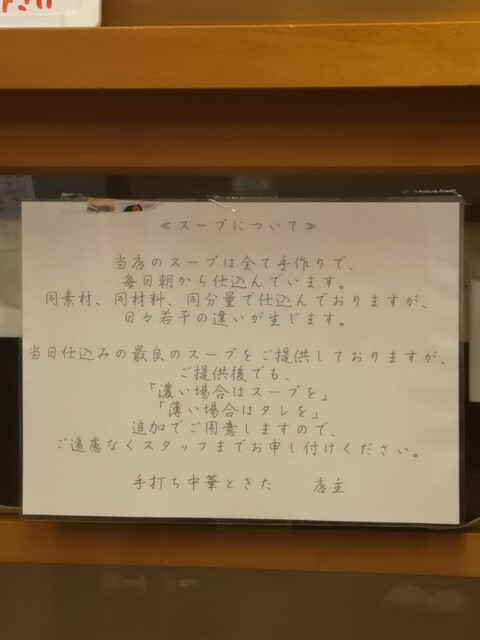 ださい
≪スープについて≫
当店のスープは全て手作りで、
毎日朝から仕込んでいます。
同素材、同材料、同分量で仕込んでおりますが、
日々若干の違いが生じます。
当日仕込みの最良のスープをご提供しておりますが、
ご提供後でも、
「濃い場合はスープを」
「薄い場合はタレを」
追加でご用意しますので、
ご遠慮なくスタッフまでお申し付けください。
手打ち中華ときた　　店主